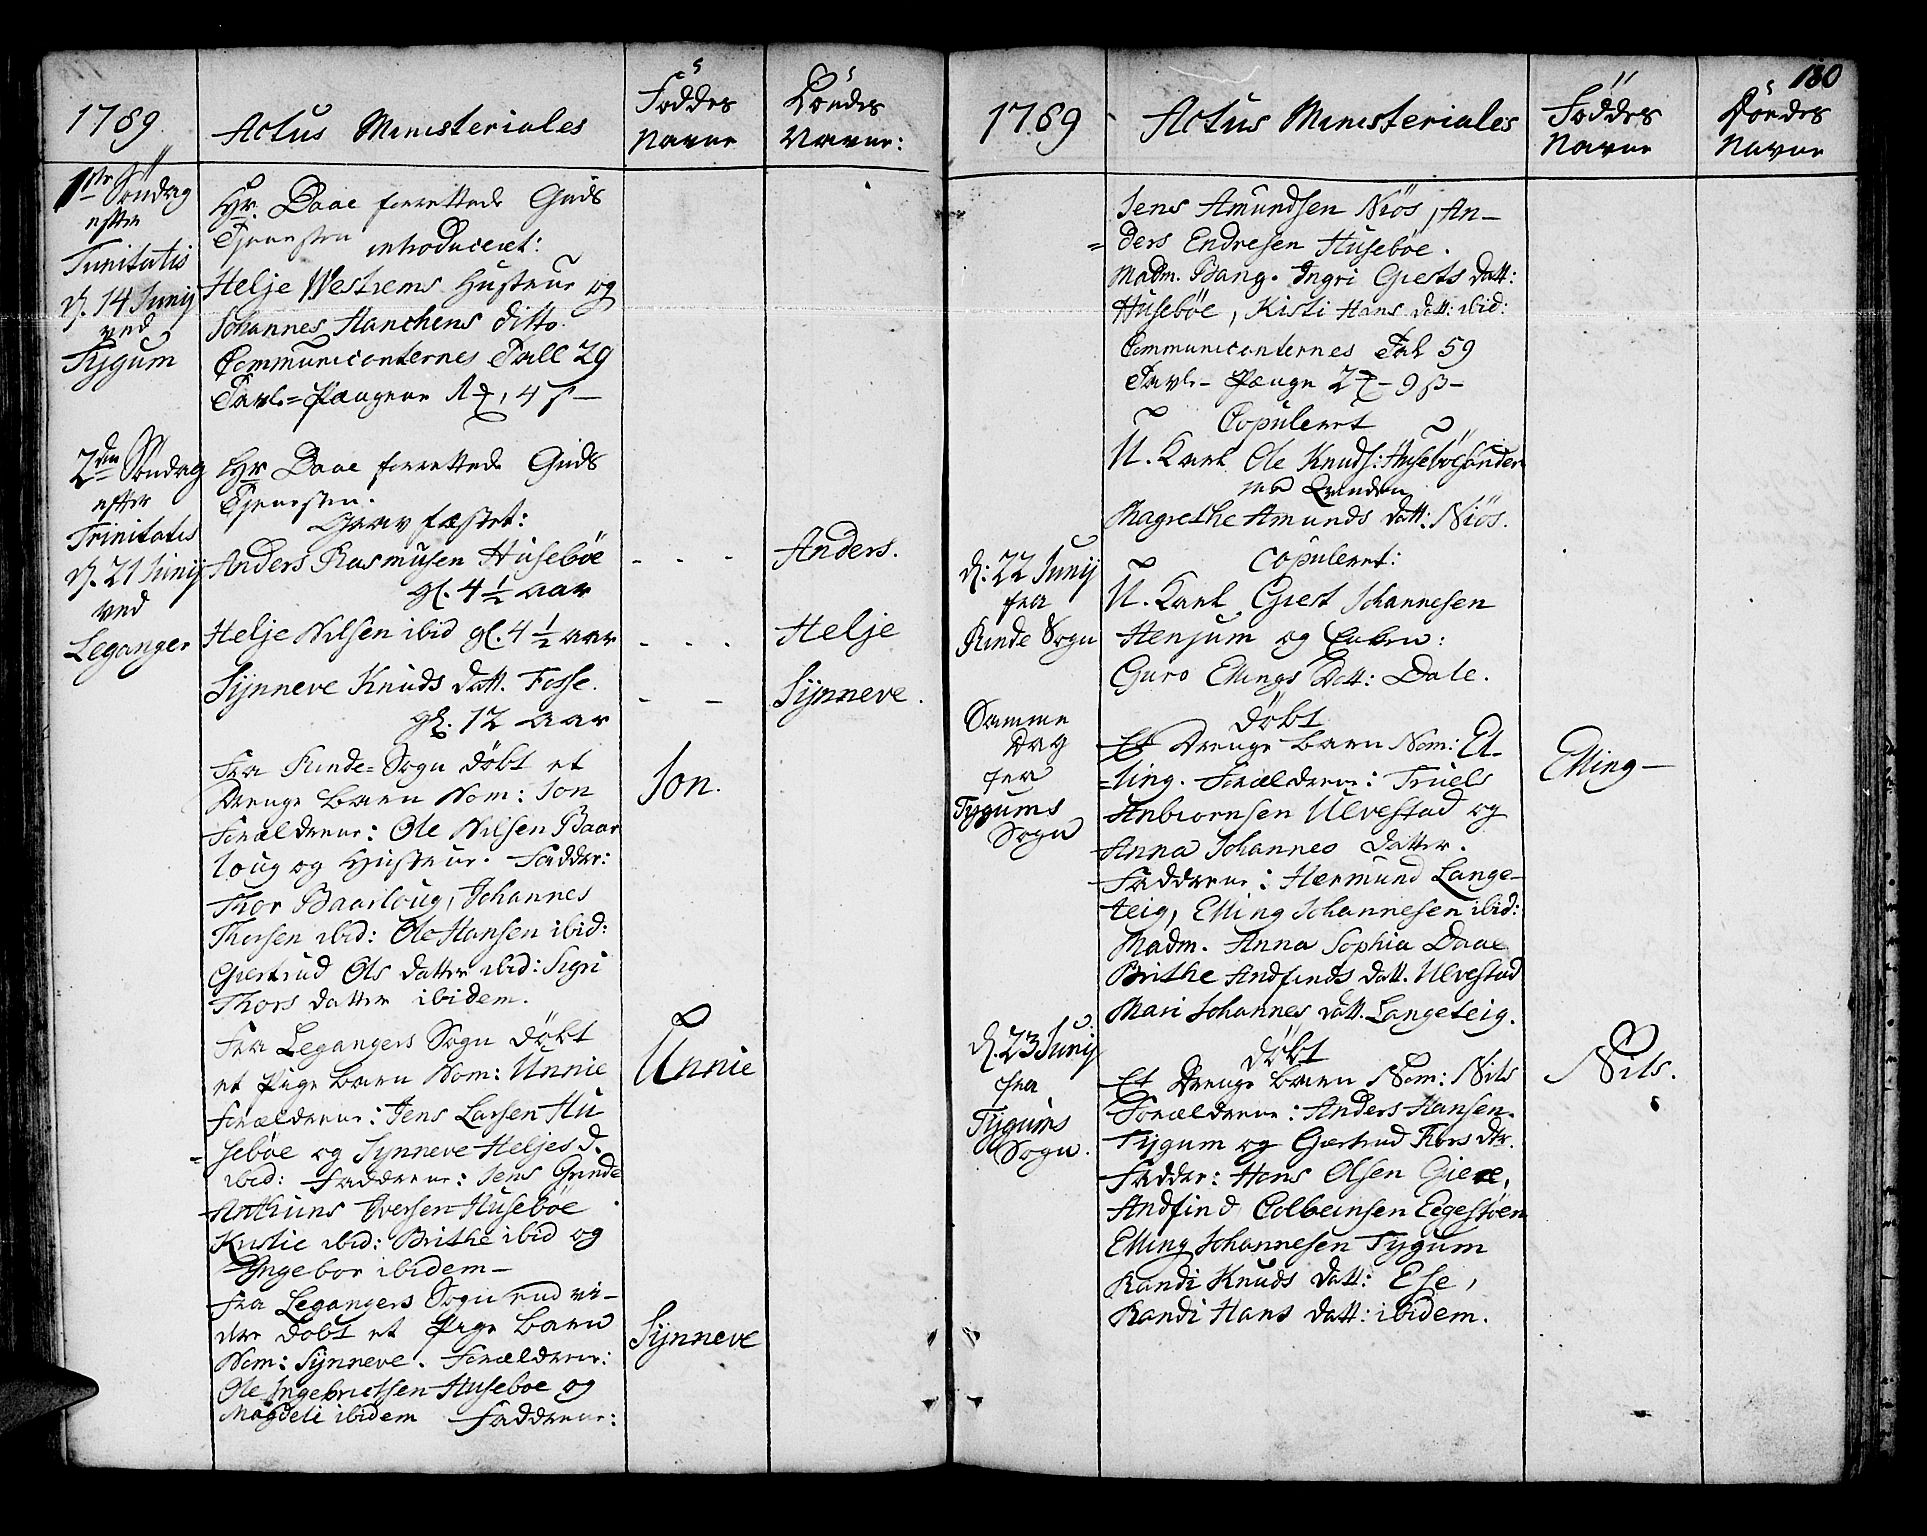 1789.
Actus Ministeriales
Föddes
Navne
Döndes
Navne:
1ste Söndag
efter
Trinitatis
d. 14 Junij
ved
Tygum
Hr. Daae forrettede Guds
Tjenesten introduceret:
Helje Westrems Hustrue og
Johannes Hanchens ditto.
Communicanternes Tall 29
Tavle=Pængene 1 4 ß—
2den Söndag
efter
Trinitatis
d. 21 Junij
ved
Leganger
Hr Daae forrettede Guds
Tjenesten.
Grav fæstet:
Anders Rasmusen Huseböe
gl. 4 ½ aar
Anders.
Helje Nilsen ibid gl. 4 ½ aar
Helje
Synneve Knuds datt. Fosse.
gl. 12 aar
Synneve.
Fra Rinde=Sogn döbt et
Drenge barn Nom: Jon
Forældrene: Ole Nilsen Baar
loug og Hustrue. Fadder:
Thor Baarloug, Johannes
Thorsen ibid: Ole Hansen ibid:
Giertrud Ols datter ibid: Sigri
Thors datter ibidem.
Jon.
Fra Legangers Sogn döbt
et Pige barn Nom: Unnie
Forældrene: Jens Larsen Hu
=sebøe og Synneve Heljes d.
ibid: Fadderne: Jens Grinde
Anthuns Iversen Husebøe
Kristie ibid: Brithe ibid og
Yngebor ibidem—
Unnie
Fra Legangers Sogn end vi-
dere döbt et Pige barn
Nom: Synneve. Forældrene:
Ole Ingebrictsen Husebøe og
Magdeli ibidem Fadderne:
Synneve
180
1789
Actus Ministeriales
Föddes
Navne
Döndes
Navne
Jens Amundsen Niös, An-
=ders Endresen Husebøe.
Madm. Bang. Ingri Gierts datt:
Husebøe, Kisti Hans datt: ibid:
Communicanternes Tal 59
Tavle- Pænge 2 - 9 ß-
Copuleret
U. Karl Ole Knuds: Husebøe
med Qvinden
Magrethe Amunds datt: Niös.
d: 22 Junij
fra
Rinde Sogn
Copuleret:
U. Karl Giert Johannesen
Henjum og Enken:
Guro Ellings Datt: Dale.
Samme
Dag
fra
Tygums
Sogn
döbt
Et Drenge barn Nom: El-
=ling. Forældrene: Truels
Anbiornsen Ulvestad og
Anna Johannes datter.
Fadderne: Hermund Lange-
teig, Elling Johannesen ibid:
Madm. Anna Sophia Daae
Brithe Andfinds datt. Ulvestad
Mari Johannes datt. Langeteig.
Elling—
d. 23 Junij
fra
Tygums
Sogn.
döbt
Et Drenge barn Nom: Nils
Forældrene: Anders Hansen
Tygum og Giertrud Thors dtr.
Fadder: Hans Olsen Giere,
Andfind Colbeinsen Eegestøen
Elling Johannesen Tygum
Randi Knuds datt: Ese,
Randi Hans datt: ibidem.
Nils.